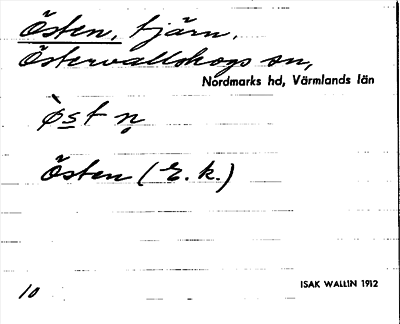 Östen, tjärn,
Östervallskogs sn,
Nordmarks hd, Värmlands län
ø̀st n̥
Östen (E. k.)
10
ISAK WALLIN 1912